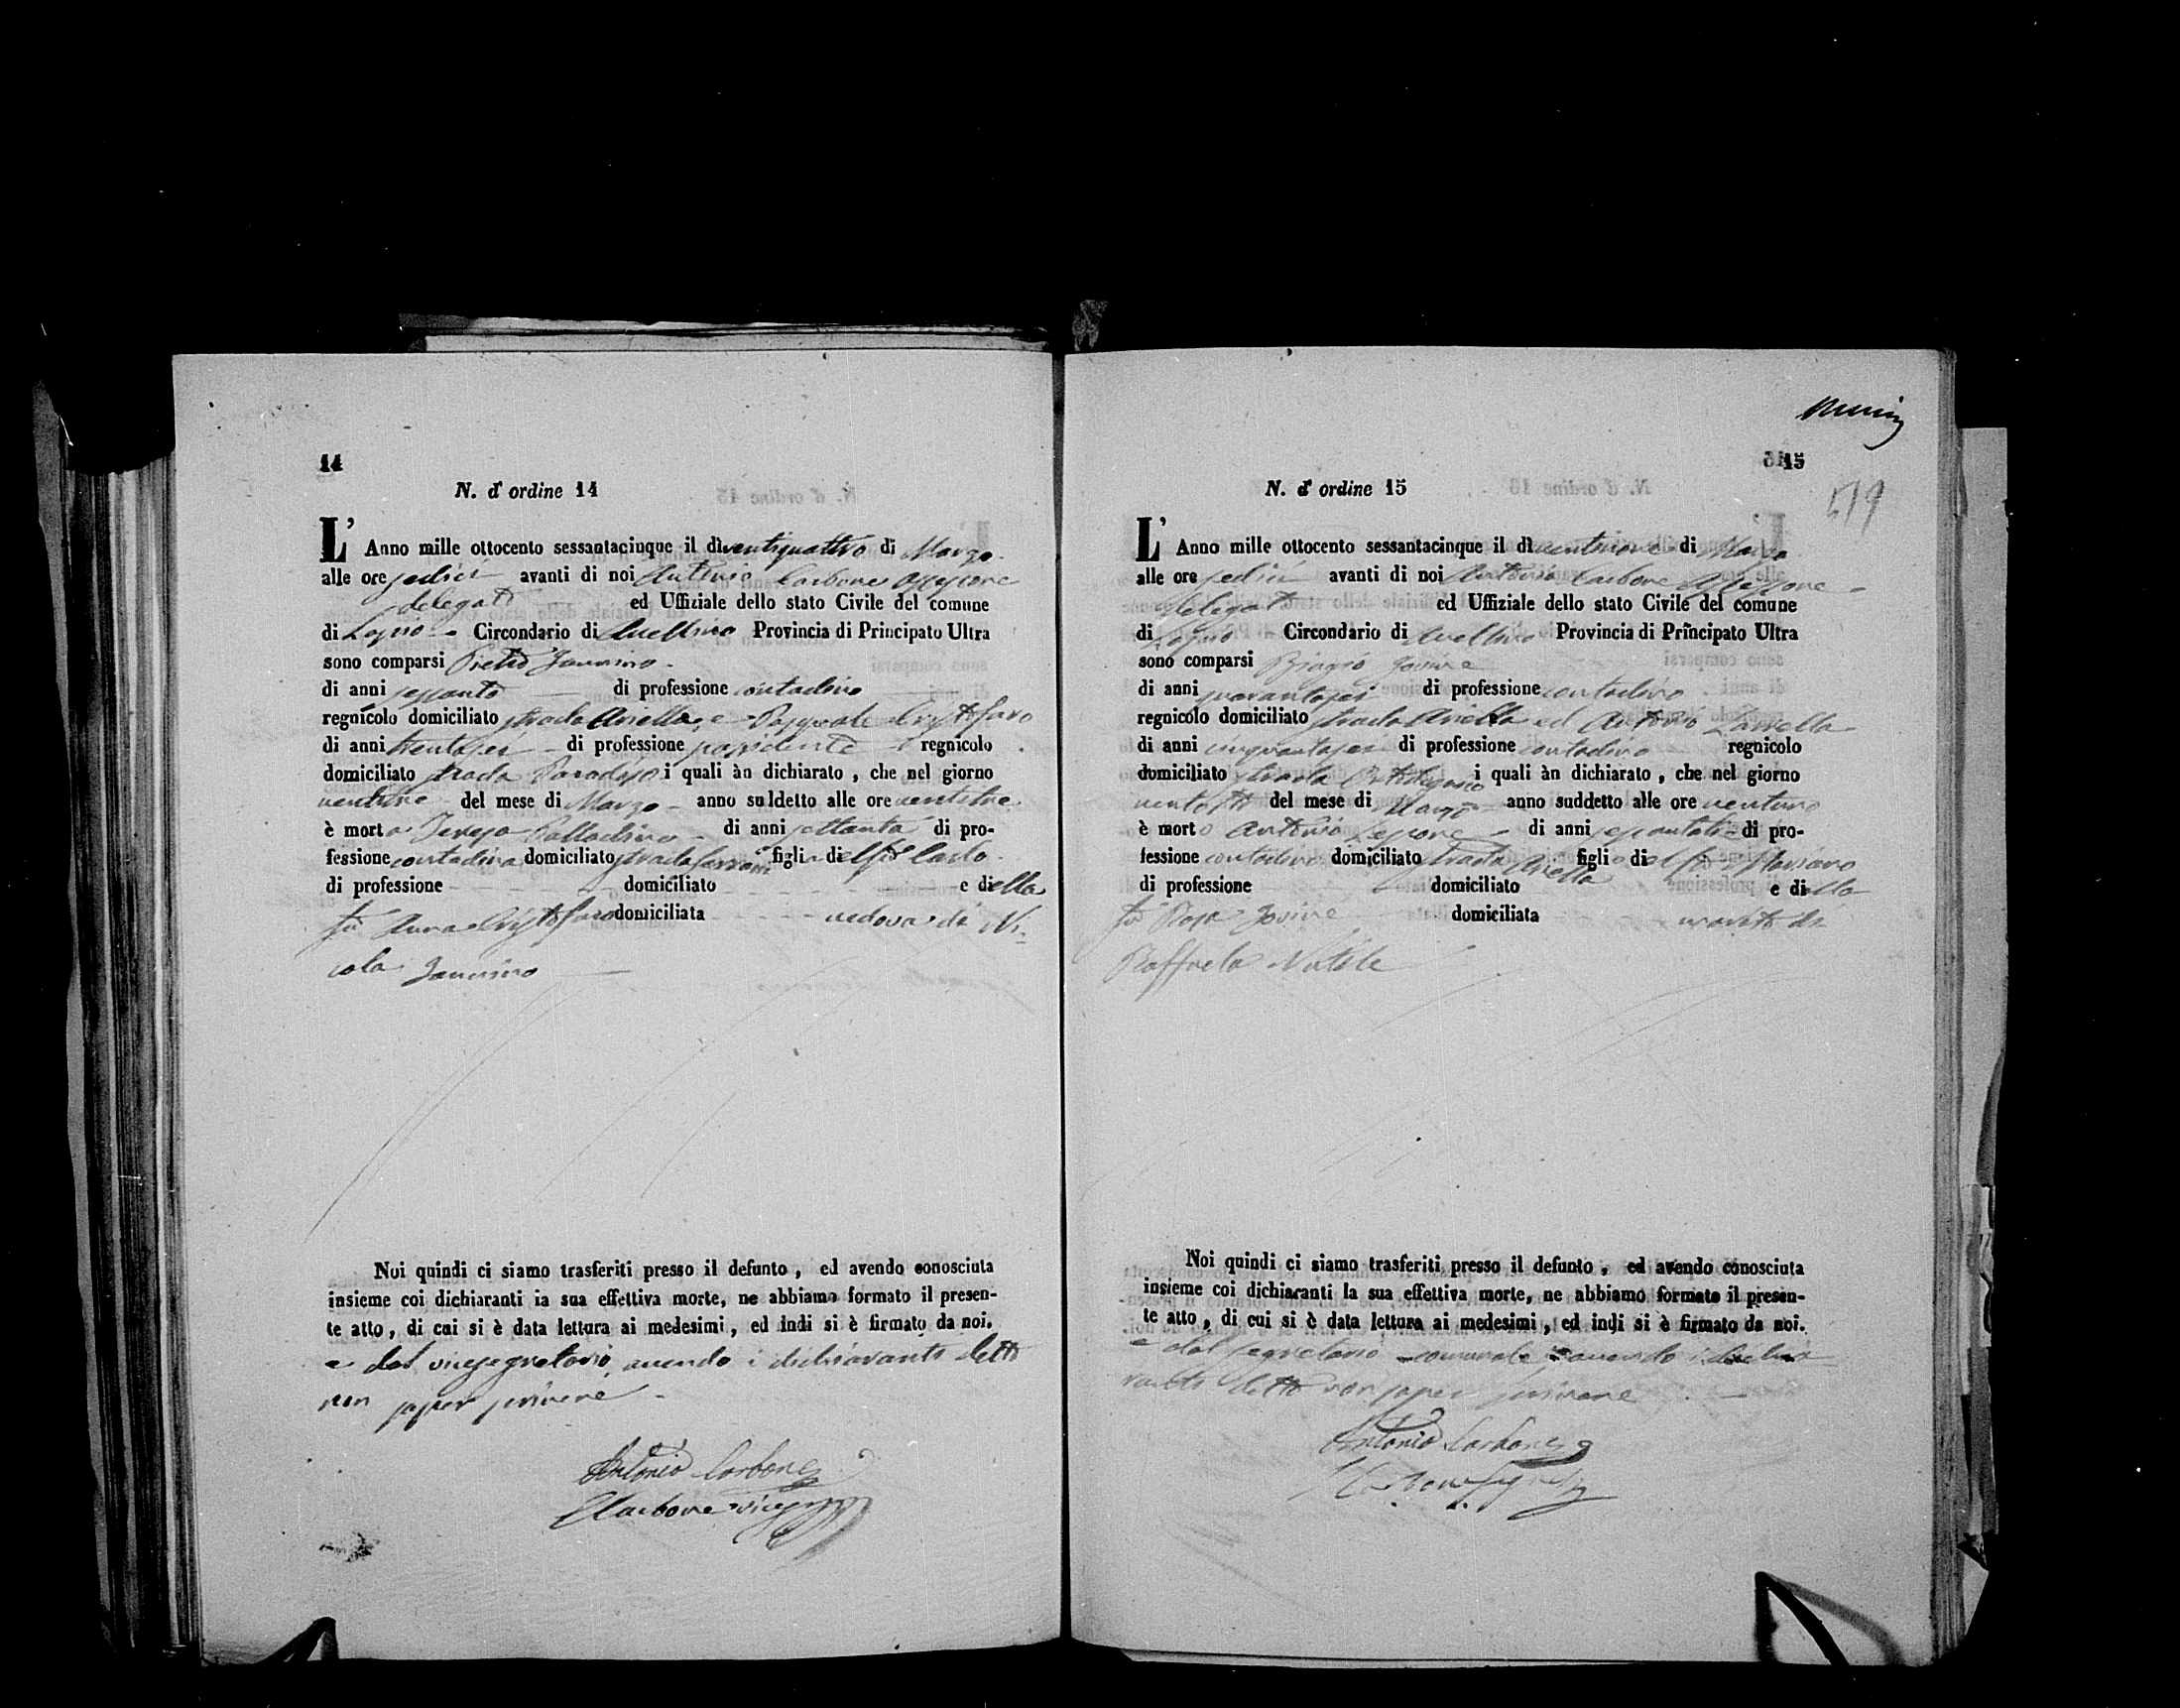 14
N. d' ordine 14
L' Anno mille ottocento sessantacinque il dì ventiquattro di Marzo
alle ore sedici avanti di noi Antonio Carbone Assessore
delegato ed Uffiziale dello stato Civile del comune
di Lapio Circondario di Avellino Provincia di Principato Ultra
sono comparsi Pietro Iannino
di anni sessanta di professione contadino
regnicolo domiciliato strada Ariella, e Pasquale Cristofaro
di anni trentasei di professione possidente regnicolo
domiciliato strada Paradiso i quali àn dichiarato, che nel giorno
ventitre del mese di Marzo anno suddetto alle ore ventitre
è morta Teresa Palladino di anni settanta di pro-
fessione contadina domiciliato strada figlia di Carlo
di professione domiciliato e di ella
fu Anna Cristofaro domiciliata vedova di Ni-
cola Iannino
Noi quindi ci siamo trasferiti presso il defunto, ed avendo conosciuta
insieme coi dichiaranti la sua effettiva morte, ne abbiamo formato il presen-
te atto, di cui si è data lettura ai medesimi, ed indi si è firmato da noi.
e dal vicesegretario avendo i dichiaranti detto
non saper scrivere
Antonio Carbone
Carbone
15
519
N. d' ordine 15
L' Anno mille ottocento sessantacinque il dì ventinove di Marzo
alle ore sedici avanti di noi Antonio Carbone Assessore
delegato ed Uffiziale dello stato Civile del comune
di Lapio Circondario di Avellino Provincia di Principato Ultra
sono comparsi Biagio Iovine
di anni quarantasei di professione contadino
regnicolo domiciliato strada Ariella ed Antonio
di anni cinquantasei di professione contadino regnicolo
domiciliato strada i quali àn dichiarato, che nel giorno
ventotto del mese di Marzo anno suddetto alle ore ventuno
è morto Antonio Lepore di anni di pro-
fessione contadino domiciliato strada Ariella figlio di
di professione domiciliato e di ella
fu Rosa Iovine domiciliata marito di
Raffaela
Noi quindi ci siamo trasferiti presso il defunto, ed avendo conosciuta
insieme coi dichiaranti la sua effettiva morte, ne abbiamo formato il presen-
te atto, di cui si è data lettura ai medesimi, ed indi si è firmato da noi.
e dal segretario comunale avendo i dichia-
ranti detto non saper scrivere
Antonio Carbone